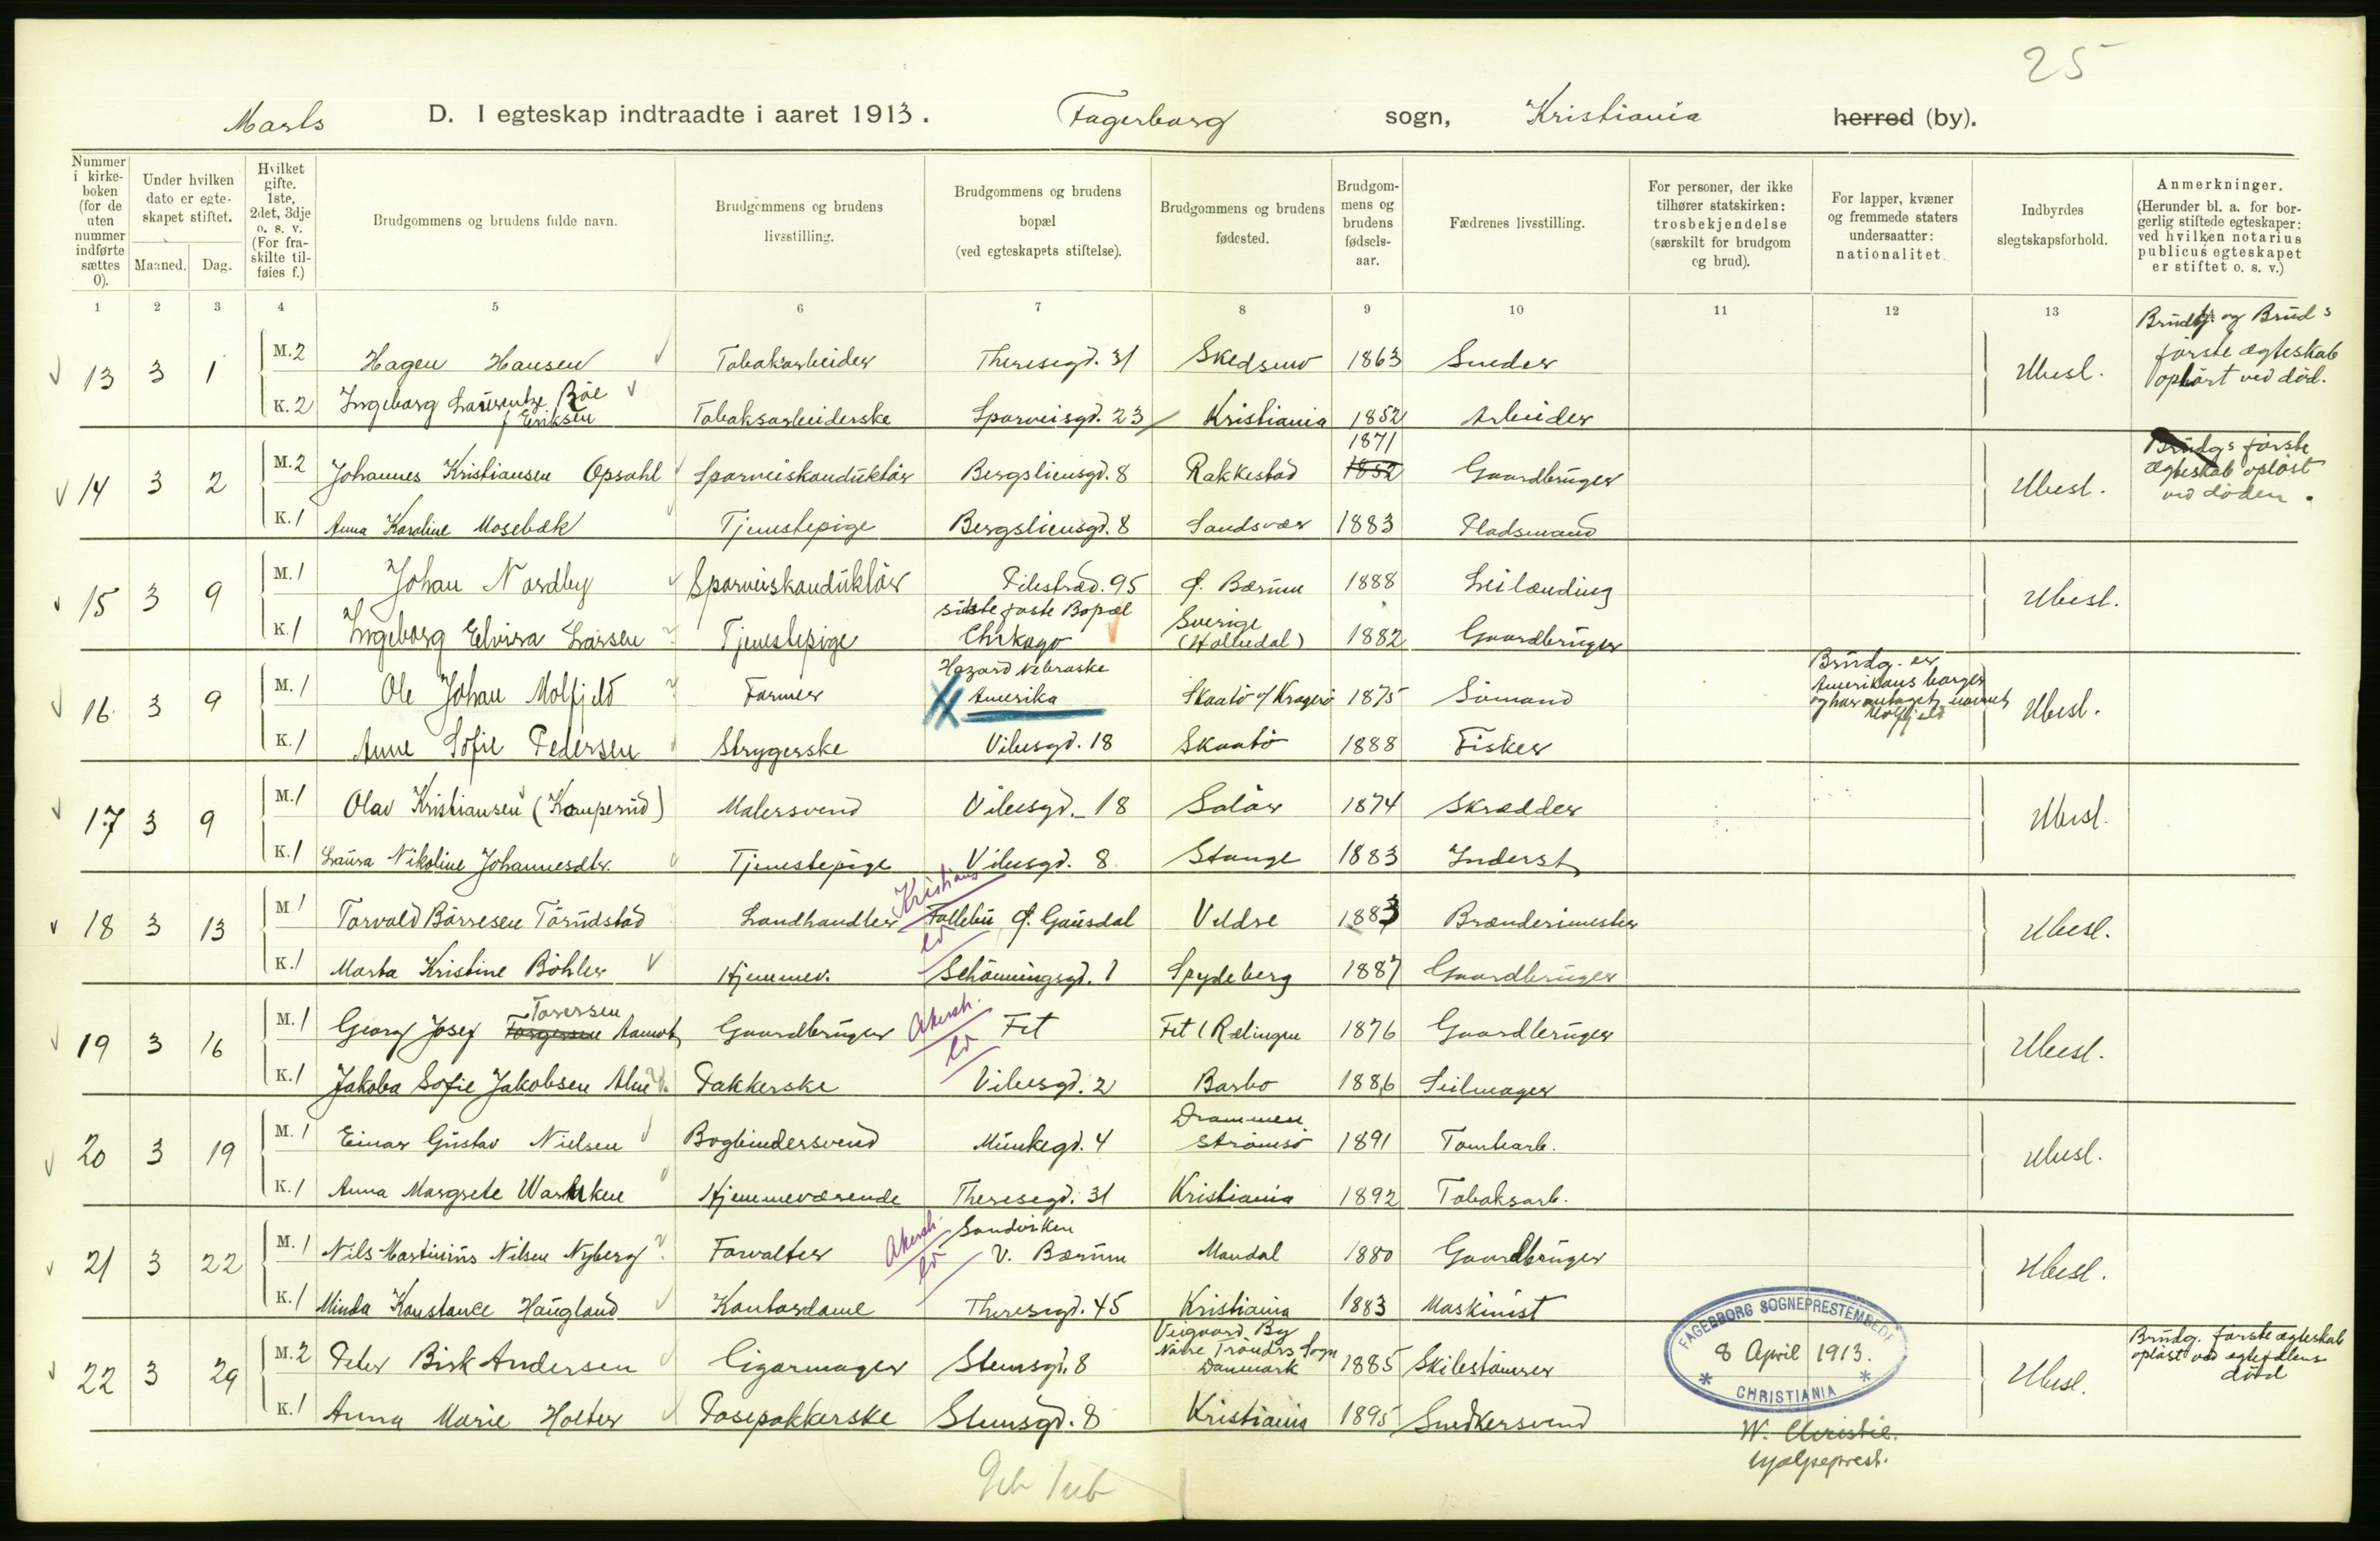 25
Marts D. I egteskap indtraadte i aaret 1913. Fagerborg sogn, Kristiania herred (by).
Nummer i kirkeboken (for de uten nummer indførte sættes 0).
Under hvilken dato er egteskapet stiftet.
Maaned. Dag.
Hvilket gifte. 1ste, 2det, 3dje o. s. v. (For fraskilte tilføies f.)
Brudgommens og brudens fulde navn.
Brudgommens og brudens livsstilling.
Brudgommens og brudens bopæl (ved egteskapets stiftelse).
Brudgommens og brudens fødested.
Brudgommens og brudens fødselsaar.
Fædrenes livsstilling.
For personer, der ikke tilhører statskirken: trosbekjendelse (særskilt for brudgom og brud).
For lapper, kvæner og fremmede staters undersaatter: nationalitet.
Indbyrdes slegtskapsforhold.
Anmerkninger. (Herunder bl. a. for borgerlig stiftede egteskaper: ved hvilken notarius publicus egteskapet er stiftet o. s. v.)
1 2 3 4 5 6 7 8 9 10 11 12 13
13 3 1 M. 2 Hagen Hansen Tobaksarbeider Theresegd. 31 Skedsmo 1863 Smeder Ubesl. Brudg. og Brud s første ægteskab ophørt ved død.
K. 2 Ingeborg Laurentze Bøe f. Eriksen Tobaksarbeiderske Sporveisgd. 23 Kristiania 1852 Arbeider
14 3 2 M. 2 Johannes Kristiansen Opsahl Sporveiskonduktør Bergsliensgd. 8 Rakkestad 1871 1852 Gaardbruger Ubesl. Brudgs første ægteskab opløst ved døden.
K. 1 Anna Karoline Mosebæk Tjenestepige Bergsliensgd. 8 Sandsvær 1883 Pladsmand
15 3 9 M. 1 Johan Nordby Sporveiskonduktør Pilestræd. 95 Ø. Bærum 1888 Leilænding Ubesl.
K. 1 Ingeborg Elvira Larsen Tjenestepige sidste faste Bopæl Chikago Sverige (Holledal) 1882 Gaardbruger
16 3 9 M. 1 Ole Johan Molfjeld Farmer Hazard Nebraske Amerika Skaatø v/ Kragerø 1875 Sømand Brudg. er Amerikans borger og har antaget navnet Molfjeld Ubesl.
K. 1 Anne Sofie Pedersen Strygerske Vibesgd. 18 Skaatø 1888 Fisker
17 3 9 M. 1 Olav Kristiansen (Kamperud) Malersvend Vibesgd. 18 Solør 1874 Skrædder Ubesl.
K. 1 Laura Nikoline Johannesdtr. Tjenestepige Vibesgd. 8 Stange 1883 Inderst
18 3 13 M. 1 Torvald Børresen Tørudstad Landhandler Kristians Follebu Ø. Gausdal Veldre 1883 Brænderimester Ubesl.
K. 1 Marta Kristine Bøhler Hjemmev. Schønningsgd. 1 Spydeberg 1887 Gaardbruger
19 3 16 M. 1 Georg Josef Torgersen Torersen Aamot Gaardbruger Akersh. Fet Fet (Rælingen 1876 Gaardbruger Ubesl.
K. 1 Jakoba Sofie Jakobsen Alme Pakkerske Vibesgd. 2 Barbo 1886 Seilmager
20 3 19 M. 1 Einar Gustav Nielsen Bogbindersvend Munkegd. 4 Drammen Strømsø 1891 Tomtearb. Ubesl.
K. 1 Anna Margrete Warnken Hjemmeværende Theresegd. 31 Kristiania 1892 Tobaksarb.
21 3 22 M. 1 Nils Martinius Nilsen Nyberg Forvalter Akersh. Sandviken V. Bærum Mandal 1880 Gaardbruger Ubesl.
K. 1 Minda Konstance Haugland Kontordame Theresegd. 45 Kristiania 1883 Maskinist
22 3 29 M. 2 Peter Birk Andersen Cigarmager Stensgd. 8 Danmark 1885 Ubesl. Brudg. første ægteskab opløst ved ægtefælens død
K. 1 Anna Marie Holter Posepakkerske Stensgd. 8 Kristiania 1895 Snedkersvend
FAGERBORG SOGNEPRESTEMBEDE
8 April 1913.
* CHRISTIANIA *
W. Christie.
hjælpeprest.